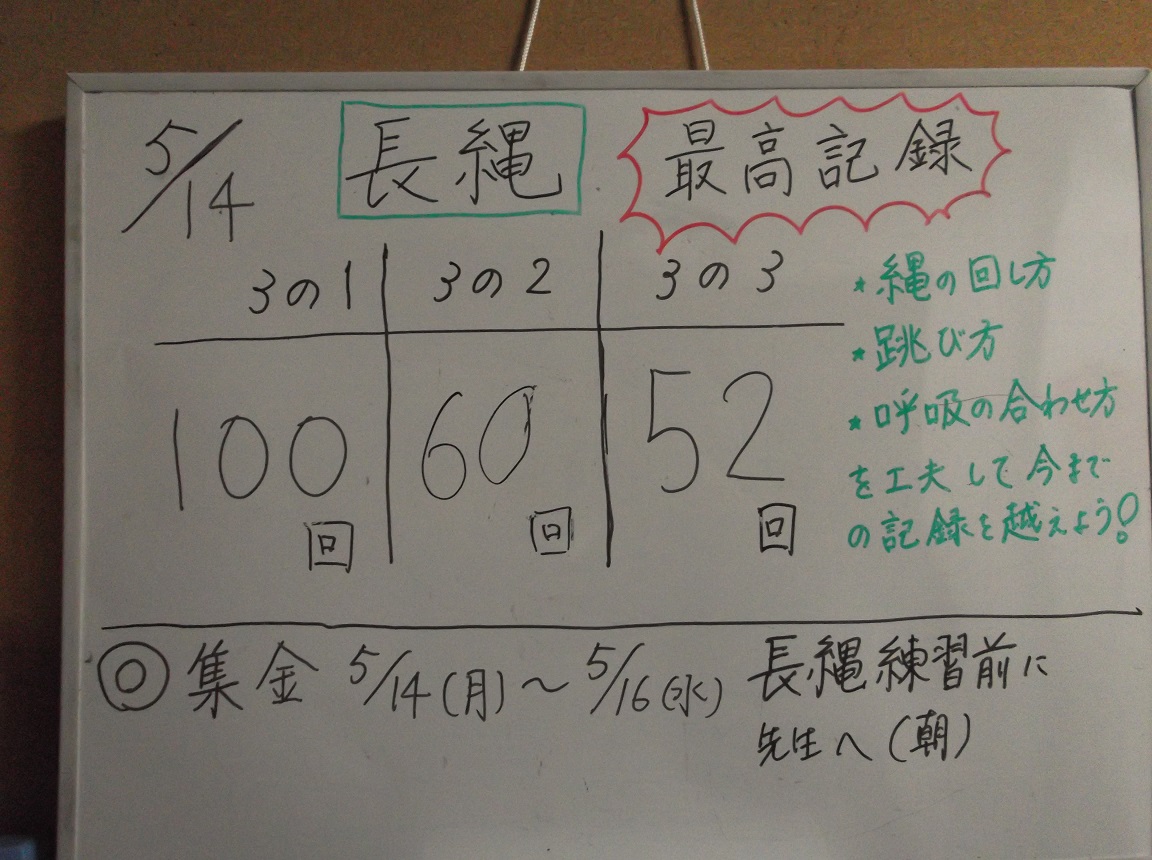 5/14 長縄 最高記録
3の1 3の2 3の3
100回 60回 52回
*縄の回し方
*跳び方
*呼吸の合わせ方
を工夫して今まで
の記録を越えよう!
◎集金 5/14(月)～5/16(水) 長縄練習前に
先生へ(朝)